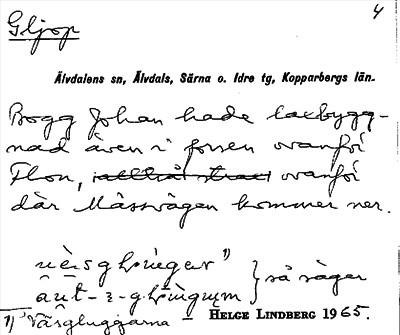 Gljop
4
Älvdalens sn, Älvdals, Särna o. Idre tg, Kopparbergs län.
Bogg Johan hade laxbygg-
nad även i forsen ovanför
Flon, ovanför
där Mässvägen kommer ner.
så säger
1) Väsgluggarna — HELGE LINDBERG 1965.